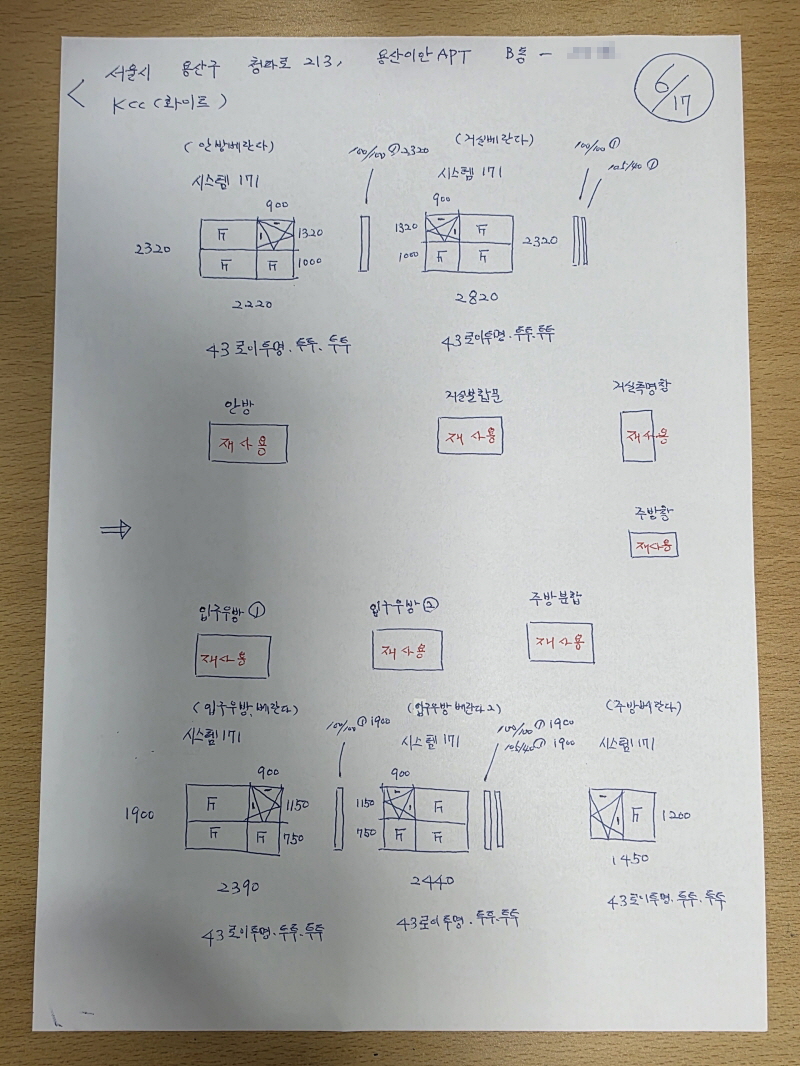 서울시 용산구 청파로 213, 용산이안APT B동 -
KCC (화이트)
6/17
(안방베란다)
시스템 171
100/100 ① 2320
(거실베란다)
시스템 171
100/100 ①
105/40 ①
900
2320
F
1320
F F
1000
2220
43로이투명.투투.투투
900
1320
F
1000
F F
2320
2820
43로이투명.투투.투투
안방
재사용
거실분합문
재사용
거실측면창
재사용
주방창
재사용
입구우방 ①
재사용
입구우방 ②
재사용
주방분합
재사용
(입구우방,베란다)
시스템 171
100/100 ① 1900
(입구우방 베란다2)
시스템 171
100/100 ① 1900
105/40 ① 1900
(주방베란다)
시스템 171
900
1900
F
1150
F F
750
2390
43로이투명.투투.투투
900
1150
F
750
F F
2440
43로이투명.투투.투투
F
1200
1450
43로이투명.투투.투투